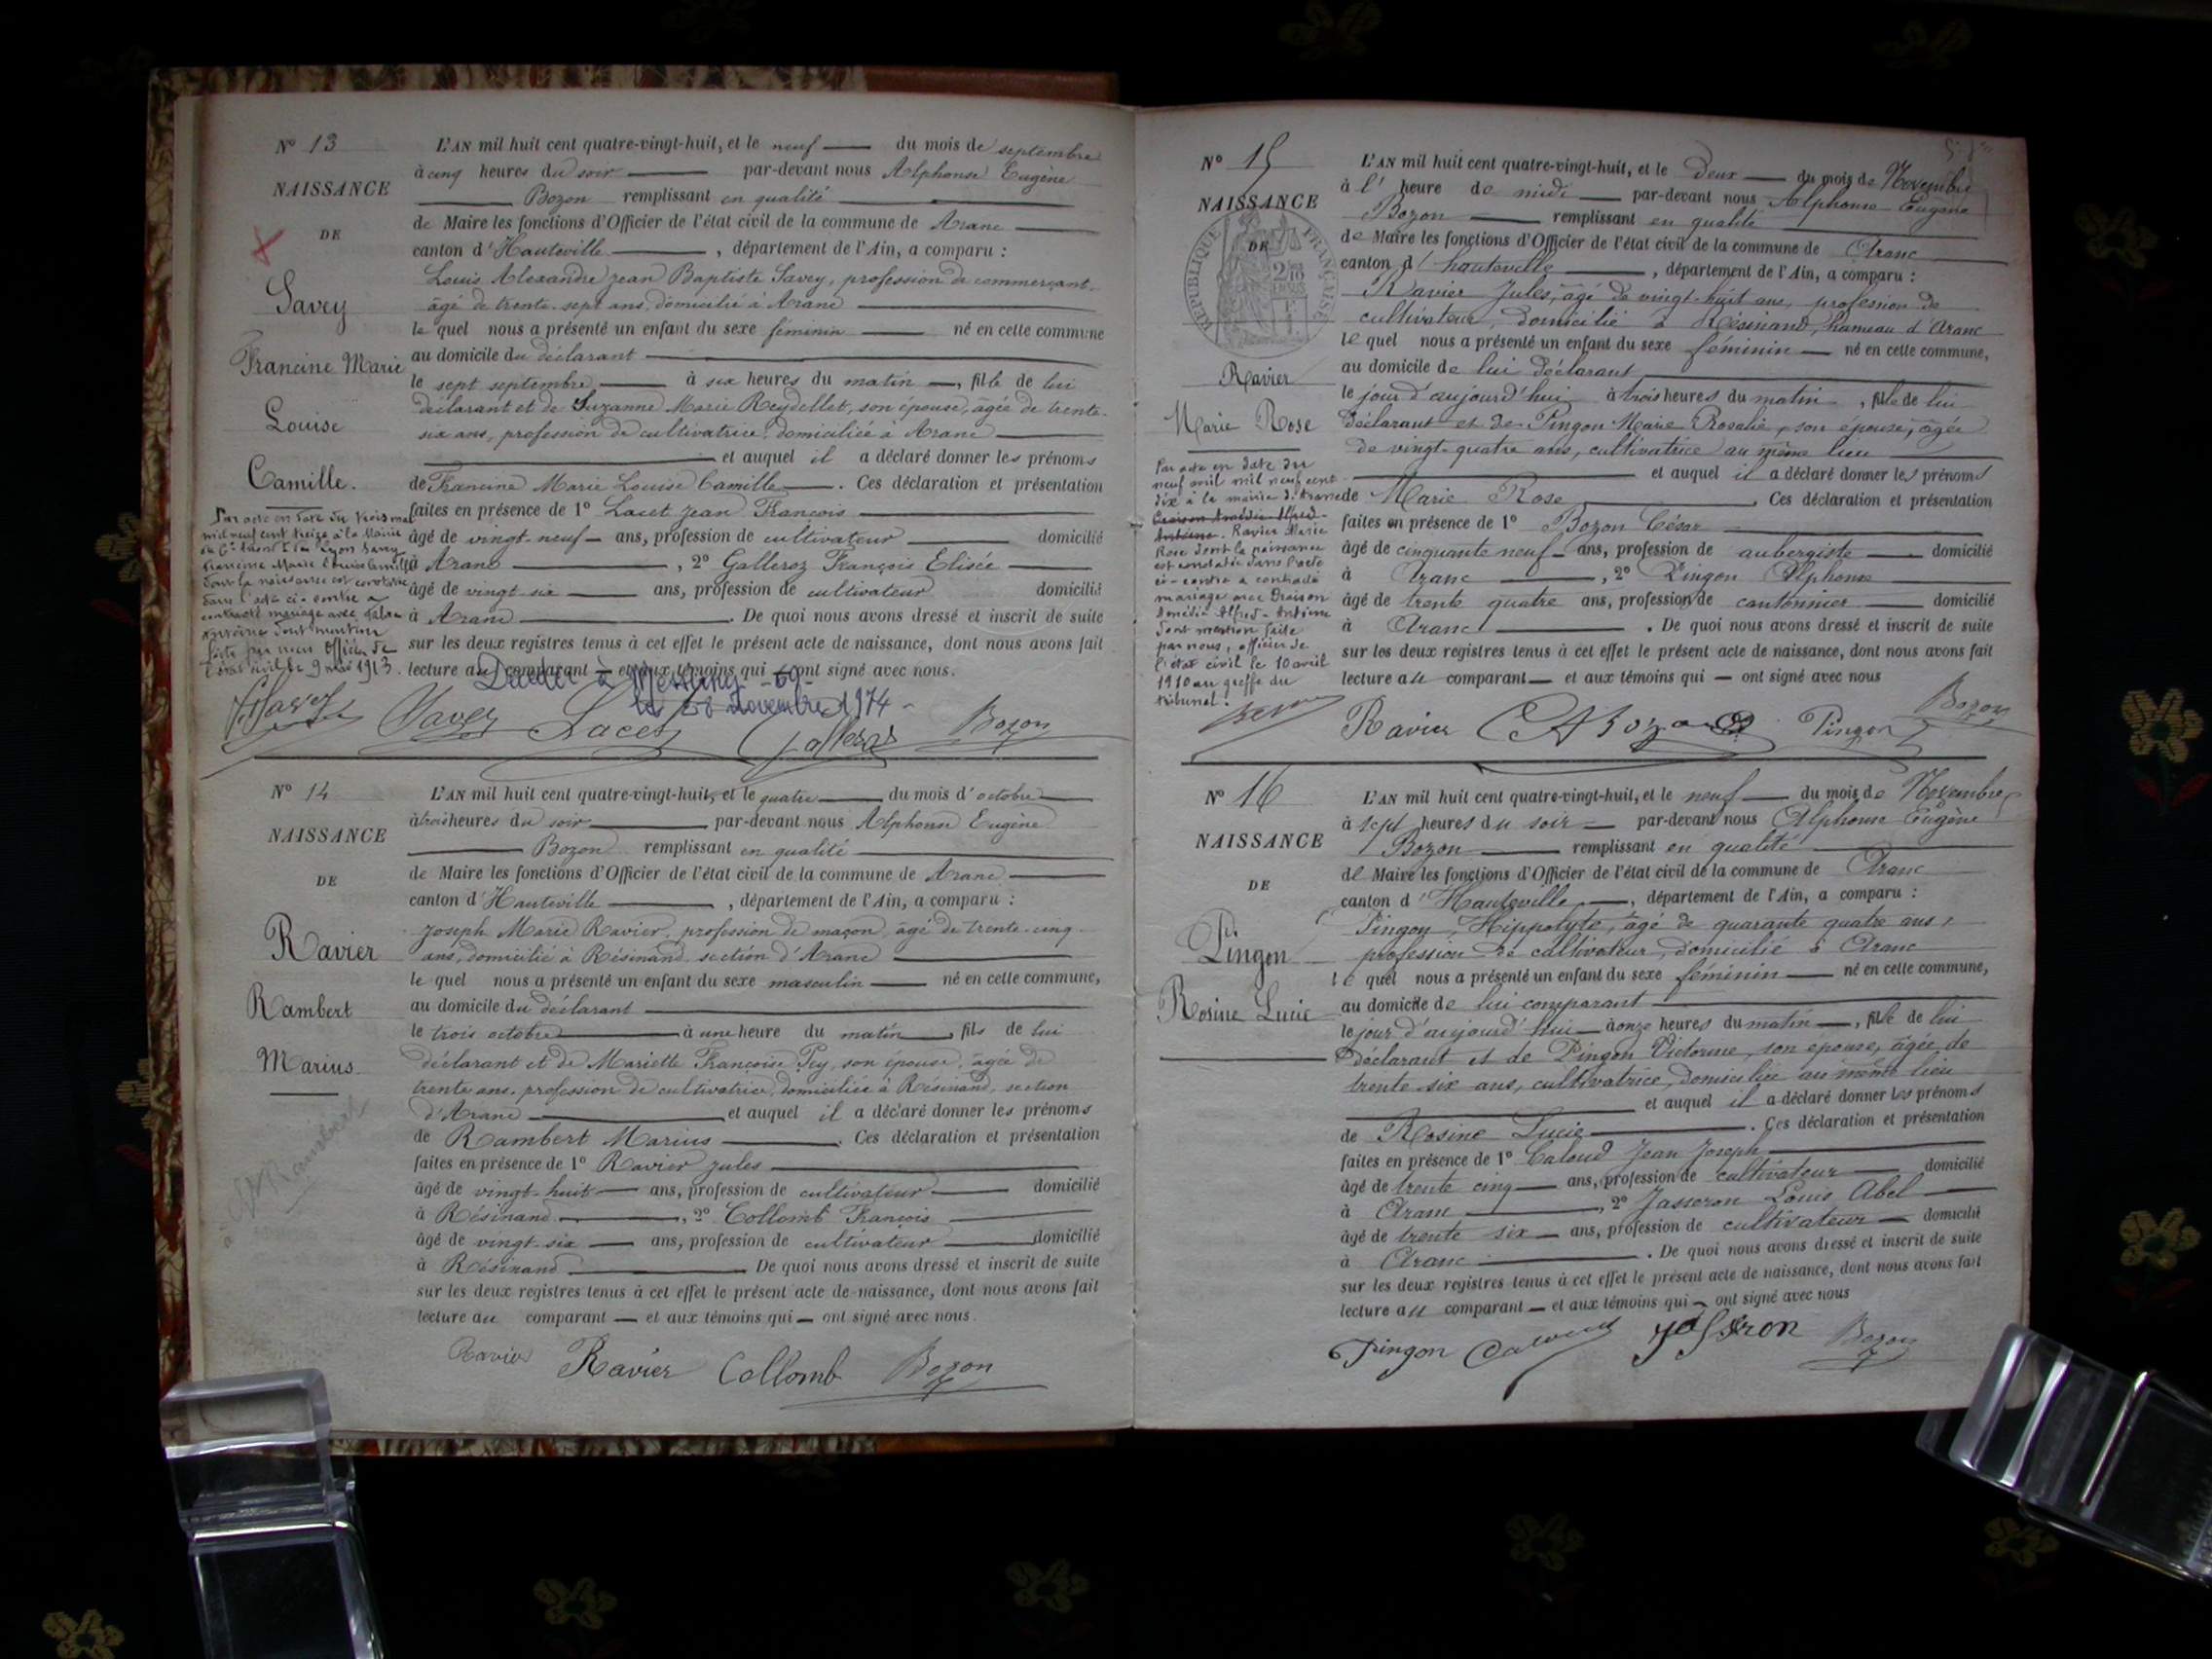 N° 13
NAISSANCE
DE
Savey
Francine Marie
Louise
Camille.
Par acte en date du trois mai
mil neuf cent treize à la Mairie
du Lyon Savey
Francine Marie Louise Camille
dont la naissance est constatée
dans l'acte ci-contre a
contracté mariage avec
dont mention
faite par nous Officier de
l'état civil le 9 mai 1913.
L'AN mil huit cent quatre-vingt-huit, et le neuf du mois de septembre
à cinq heures du soir par-devant nous Alphonse Eugène
Bozon remplissant en qualité
de Maire les fonctions d'Officier de l'état civil de la commune de Aranc
canton d'Hauteville, département de l'Ain, a comparu :
Louis Alexandre Jean Baptiste Savey, profession de commerçant
âgé de trente-sept ans, domicilié à Aranc
le quel nous a présenté un enfant du sexe féminin né en cette commune
au domicile du déclarant
le sept septembre, à six heures du matin, fille de lui
déclarant et de Suzanne Marie Reydellet, son épouse, âgée de trente-
six ans, profession de cultivatrice, domiciliée à Aranc
et auquel il a déclaré donner les prénoms
de Francine Marie Louise Camille. Ces déclaration et présentation
faites en présence de 1° Lacet Jean François
âgé de vingt-neuf ans, profession de cultivateur domicilié
à Aranc, 2° Galleroz François Elisée
âgé de vingt-six ans, profession de cultivateur domicilié
à Aranc. De quoi nous avons dressé et inscrit de suite
sur les deux registres tenus à cet effet le présent acte de naissance, dont nous avons fait
lecture au comparant et aux témoins qui ont signé avec nous.
Décédée à Messimy -69-
le 28 Novembre 1974 -
Savey Savey Lacet Galleroz Bozon
N° 14
NAISSANCE
DE
Ravier
Rambert
Marius
Rambert
L'AN mil huit cent quatre-vingt-huit, et le quatre du mois d'octobre
à trois heures du soir par-devant nous Alphonse Eugène
Bozon remplissant en qualité
de Maire les fonctions d'Officier de l'état civil de la commune de Aranc
canton d'Hauteville, département de l'Ain, a comparu :
Joseph Marie Ravier, profession de maçon, âgé de trente-cinq
ans, domicilié à Résinand, section d'Aranc
le quel nous a présenté un enfant du sexe masculin né en cette commune,
au domicile du déclarant
le trois octobre à une heure du matin, fils de lui
déclarant et de Mariette Françoise Pey, son épouse, âgée de
trente ans, profession de cultivatrice, domiciliée à Résinand, section
d'Aranc et auquel il a déclaré donner les prénoms
de Rambert Marius. Ces déclaration et présentation
faites en présence de 1° Ravier Jules
âgé de vingt-huit ans, profession de cultivateur domicilié
à Résinand, 2° Collomb François
âgé de vingt-six ans, profession de cultivateur domicilié
à Résinand De quoi nous avons dressé et inscrit de suite
sur les deux registres tenus à cet effet le présent acte de naissance, dont nous avons fait
lecture au comparant et aux témoins qui ont signé avec nous.
Ravier Ravier Collomb Bozon
N° 15
NAISSANCE
DE
RÉPUBLIQUE FRANÇAISE
Ravier
Marie Rose
Par acte en date du
neuf avril mil neuf cent
dix à la mairie d'Aranc
Craison Amédée Alfred-
Antoine. Ravier Marie
Rose dont la naissance
est constatée dans l'acte
ci-contre a contracté
mariage avec Craison
Amédée Alfred-Antoine
dont mention faite
par nous, officier de
l'état civil le 10 avril
1910 au greffe du
tribunal.
L'AN mil huit cent quatre-vingt-huit, et le deux du mois de Novembre
à l' heure de midi par-devant nous Alphonse Eugène
Bozon remplissant en qualité
de Maire les fonctions d'Officier de l'état civil de la commune de Aranc
canton d'hauteville, département de l'Ain, a comparu :
Ravier Jules, âgé de vingt-huit ans, profession de
cultivateur, domicilié à Résinand, hameau d'Aranc
le quel nous a présenté un enfant du sexe féminin né en cette commune,
au domicile de lui déclarant
le jour d'aujourd'hui à trois heures du matin, fille de lui
déclarant et de Pingon Marie Rosalie, son épouse, âgée
de vingt-quatre ans, cultivatrice au même lieu
et auquel il a déclaré donner les prénoms
de Marie Rose. Ces déclaration et présentation
faites en présence de 1° Bozon César
âgé de cinquante neuf ans, profession de aubergiste domicilié
à Aranc, 2° Pingon Alphonse
âgé de trente quatre ans, profession de cantonnier domicilié
à Aranc. De quoi nous avons dressé et inscrit de suite
sur les deux registres tenus à cet effet le présent acte de naissance, dont nous avons fait
lecture au comparant et aux témoins qui ont signé avec nous
Ravier C Bozon Pingon Bozon
N° 16
NAISSANCE
DE
Pingon
Rosine Lucie
L'AN mil huit cent quatre-vingt-huit, et le neuf du mois de Novembre
à sept heures du soir par-devant nous Alphonse Eugène
Bozon remplissant en qualité
de Maire les fonctions d'Officier de l'état civil de la commune de Aranc
canton d'Hauteville, département de l'Ain, a comparu :
Pingon, Hippolyte, âgé de quarante quatre ans,
profession de cultivateur, domicilié à Aranc
le quel nous a présenté un enfant du sexe féminin né en cette commune,
au domicile de lui comparant
le jour d'aujourd'hui à onze heures du matin, fille de lui
déclarant et de Pingon Victorine, son épouse, âgée de
trente six ans, cultivatrice, domiciliée au même lieu
et auquel il a déclaré donner les prénoms
de Rosine Lucie. Ces déclaration et présentation
faites en présence de 1° Caloud Jean Joseph
âgé de trente cinq ans, profession de cultivateur domicilié
à Aranc, 2° Jasseron Louis Abel
âgé de trente six ans, profession de cultivateur domicilié
à Aranc. De quoi nous avons dressé et inscrit de suite
sur les deux registres tenus à cet effet le présent acte de naissance, dont nous avons fait
lecture au comparant et aux témoins qui ont signé avec nous
Pingon Caloud Jasseron Bozon